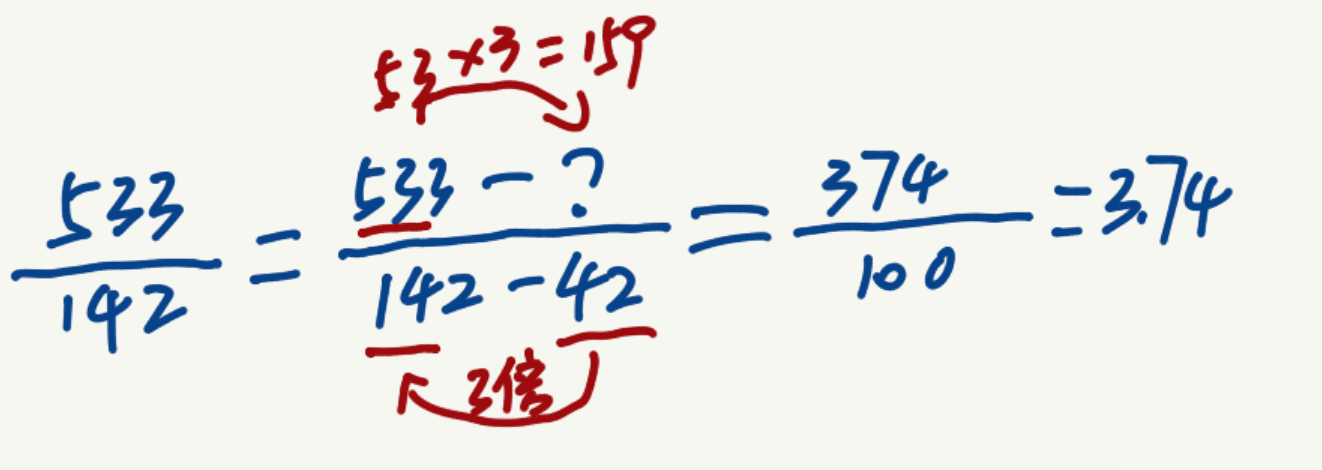 53×3=159
533/142 = (533-?)/(142-42) = 374/100 = 3.74
3倍